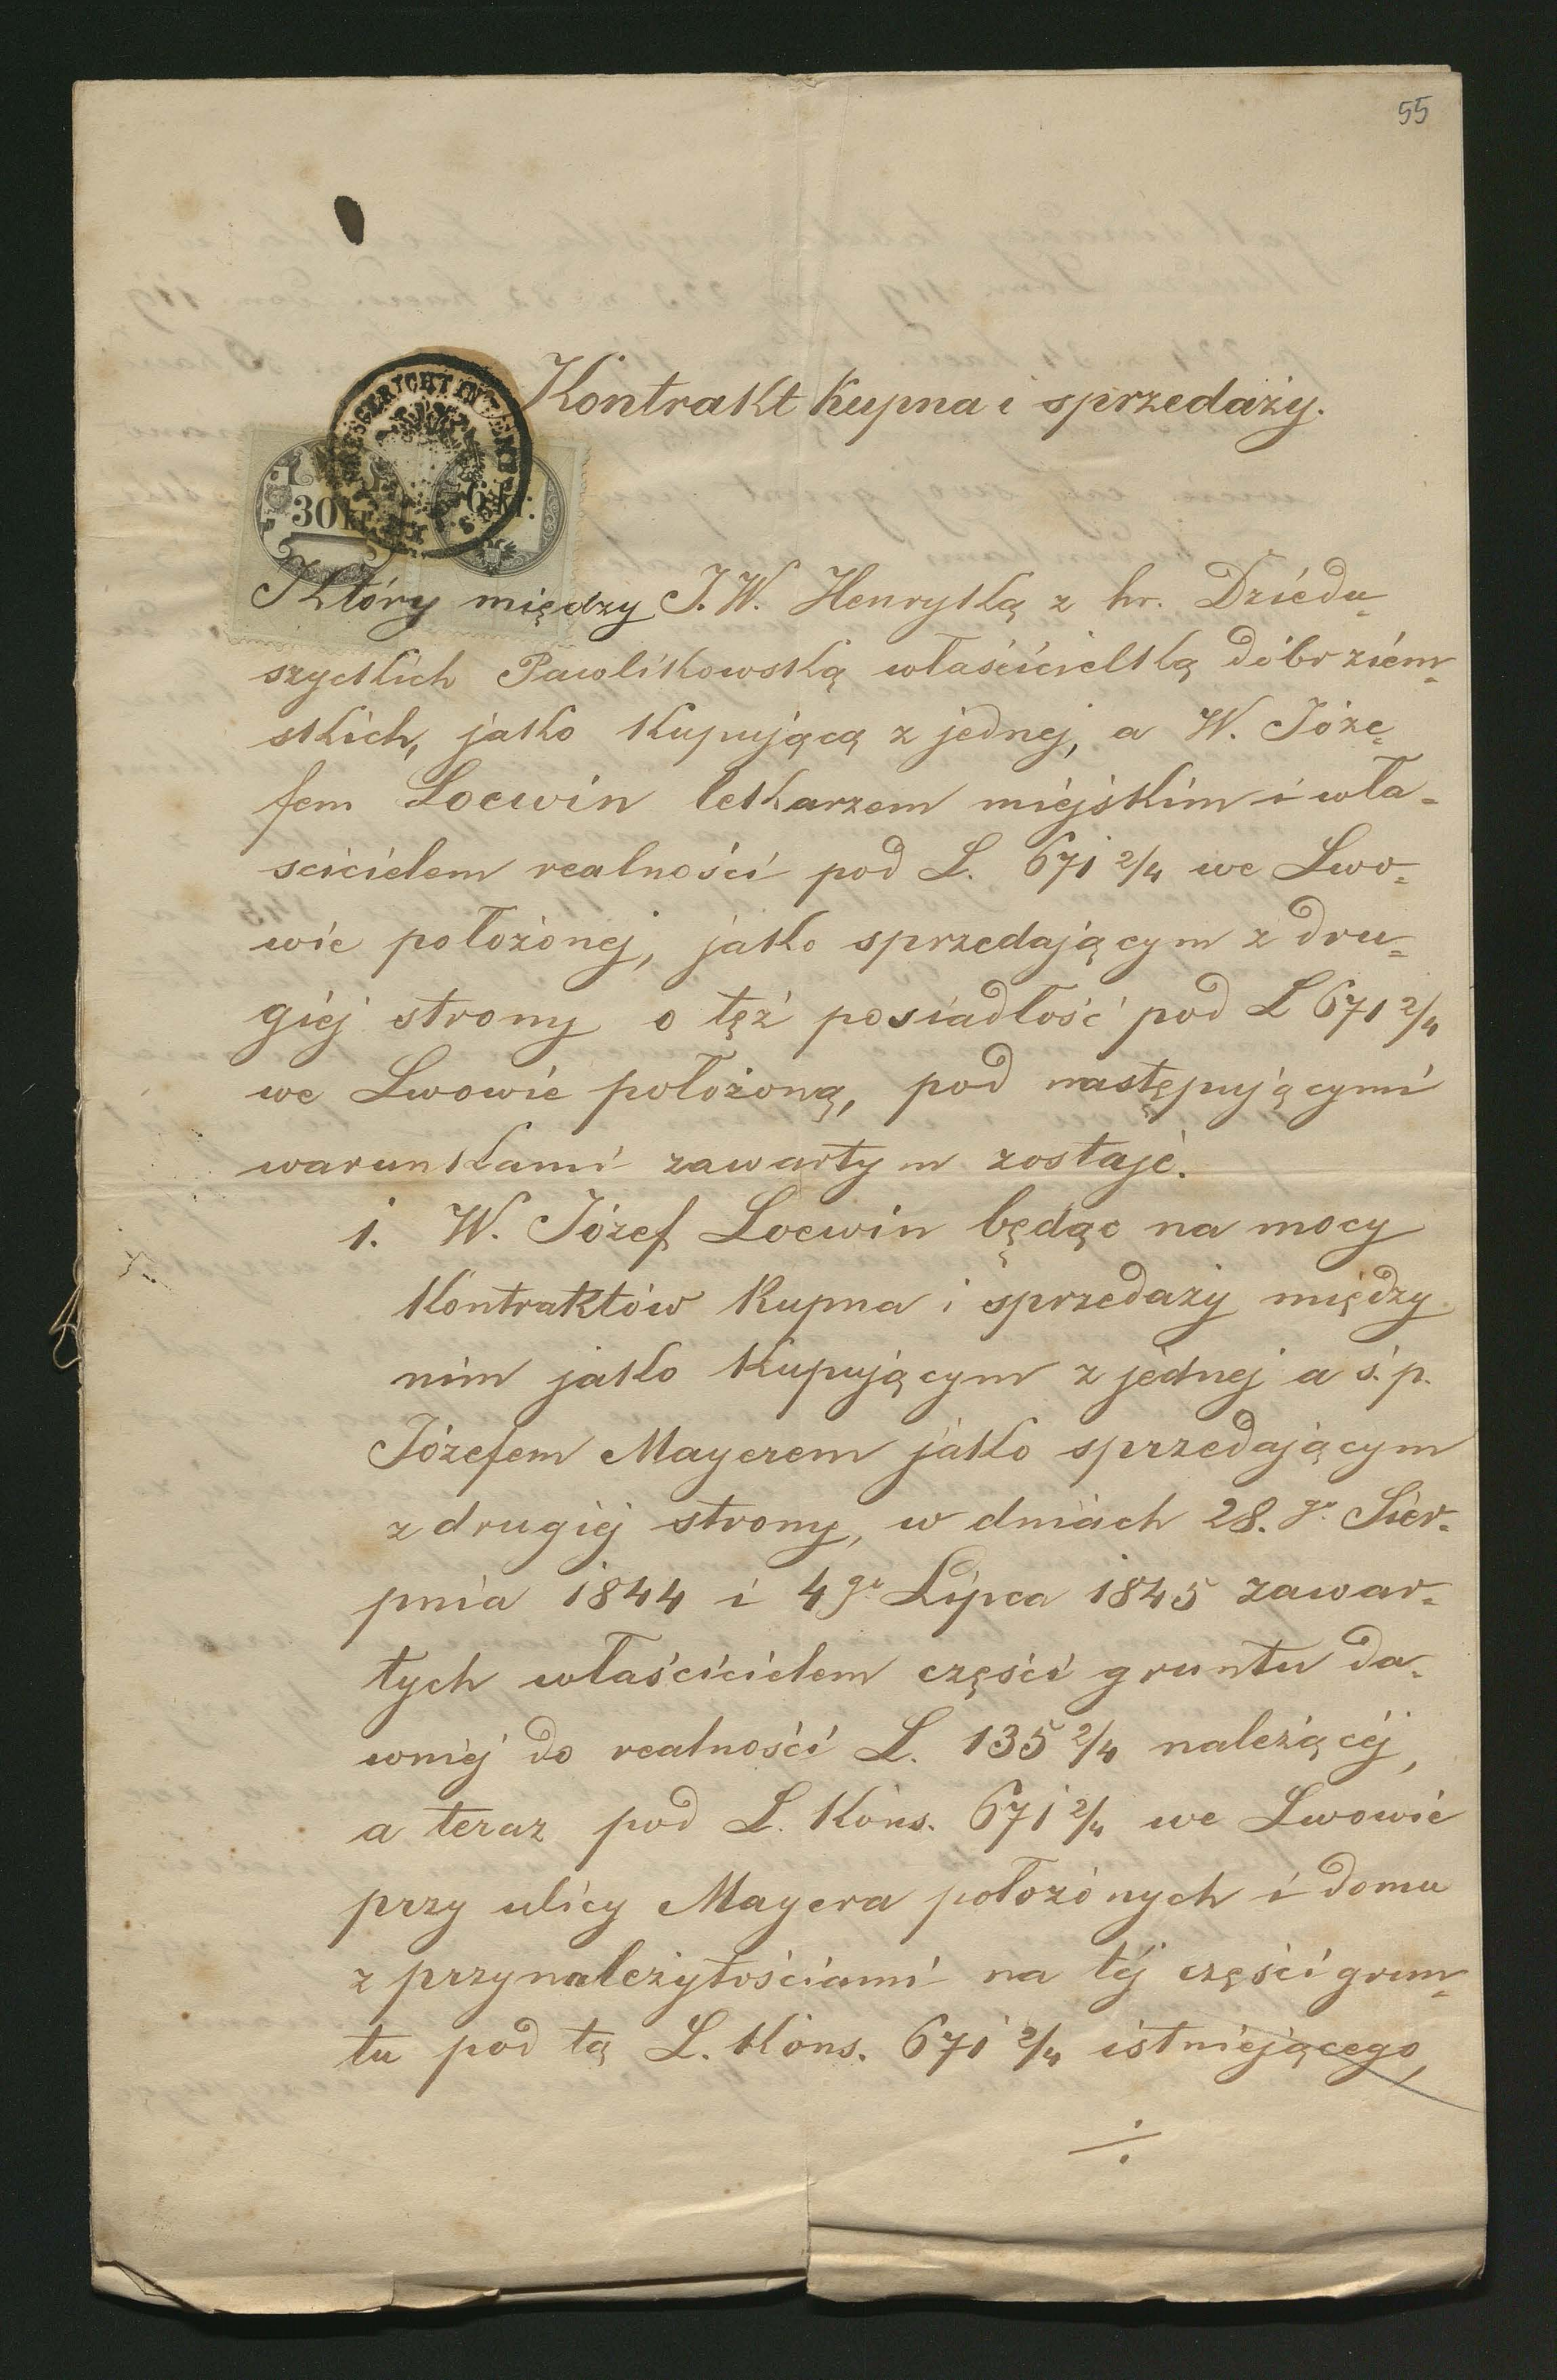 55
Kontrakt kupna i sprzedaży.
30 kr.
Który między J. W. Henryką z hr. Dziedu=
szyckich Pawlikowską właścicielką dóbr ziem=
skich, jako kupującą z jednej, a W. Józe=
fem Loewin lekarzem miejskim i wła=
scicielem realności pod L. 671 2/4 we Lwo=
wie położonej, jako sprzedającym z dru=
giej strony o tęż posiadłość pod L 671 2/4
we Lwowie położoną, pod następującymi
warunkami zawartym zostaje.
1. W. Józef Loewin będąc na mocy
kontraktów kupna i sprzedaży między
nim jako kupującym z jednej a ś. p.
Józefem Mayerem jako sprzedającym
z drugiej strony, w dniach 28. go Sier=
pnia 1844 i 4 go Lipca 1845 zawar=
tych właścicielem części gruntu da=
wniej do realności L. 135 2/4 należącej,
a teraz pod L. kons. 671 2/4 we Lwowie
przy ulicy Mayera położonych i domu
z przynależytościami na tej części grun=
tu pod tą L. kons. 671 2/4 istniejącego,
÷